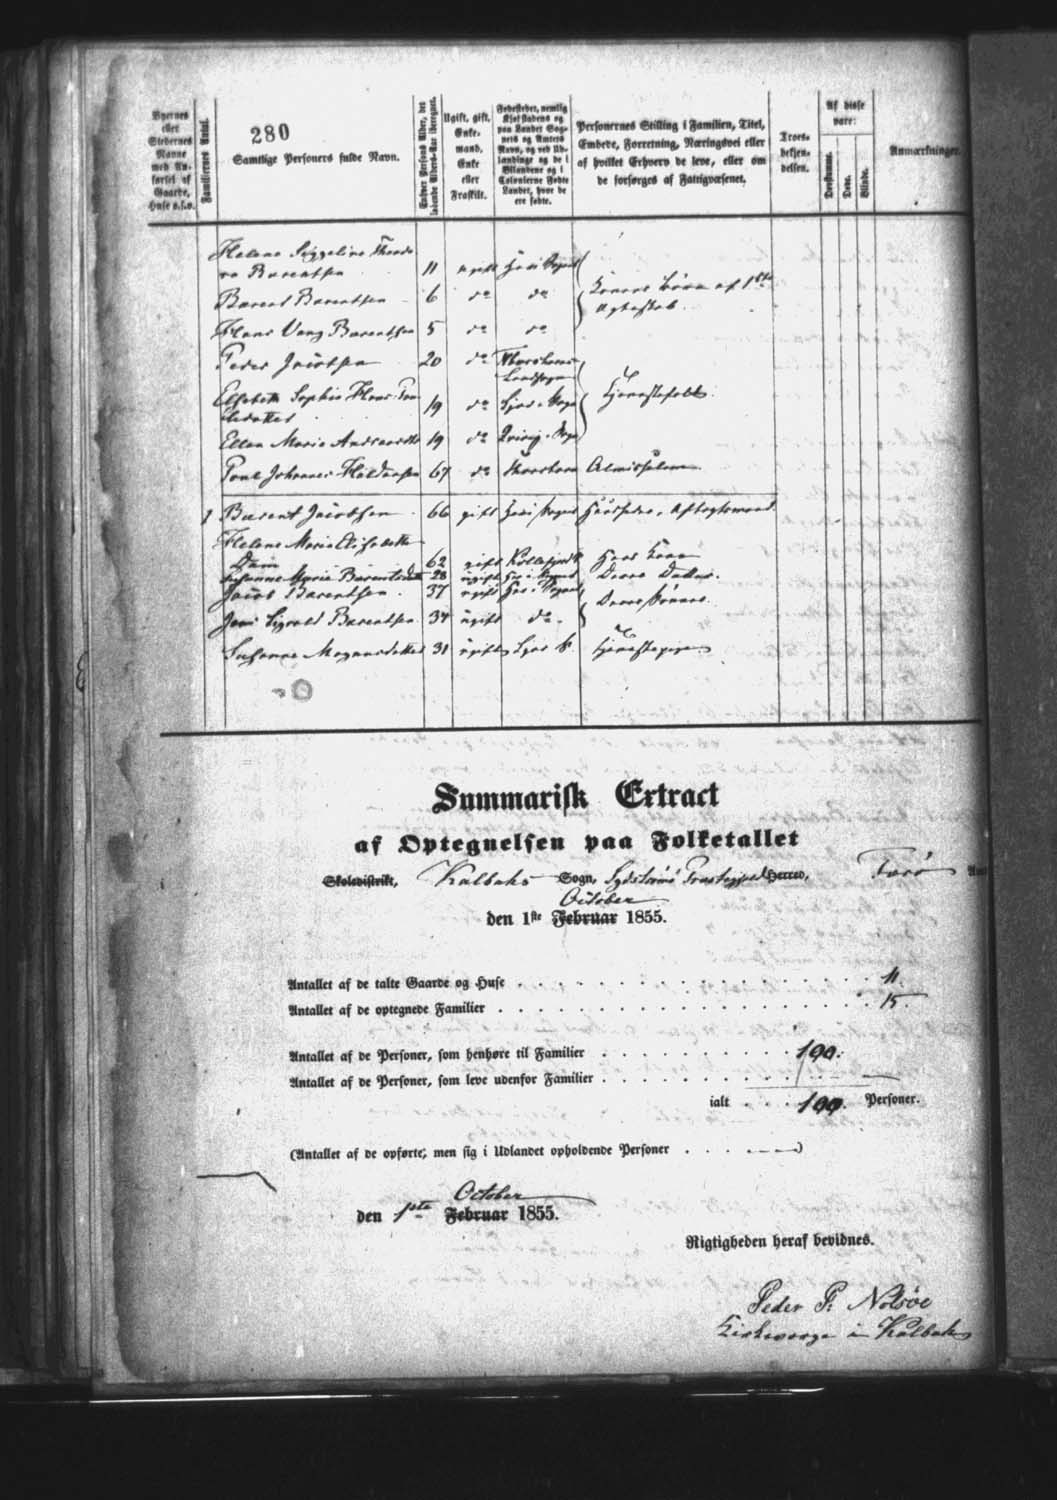 Byernes
eller
Stedernes
Navne
med An-
førsel af
Gaarde,
Huse o.s.v.
Familiernes Antal.
280
Samtlige Personers fulde Navn.
Enhver Persons Alder, det
løbende Alders-Aar iberegnet.
Ugift, gift,
Enke-
mand,
Enke
eller
Fraskilt.
Fødestedet, nemlig
Kjøbstadens og
paa Landet Sog-
nets og Amtets
Navn, og ved Ud-
lændinge og de i
Bilandene og i
Colonierne Fødte
Landet, hvor de
ere fødte.
Personernes Stilling i Familien, Titel,
Embede, Forretning, Næringsvei eller
af hvilket Erhverv de leve, eller om
de forsørges af Fattigvæsenet.
Troes-
bekjen-
delsen.
Af disse
vare:
Døvstumme.
Døve.
Blinde.
Anmærkninger.
Helene Siggeline Theodo-
ra Barentsen 11 ugift Sogn
Barent Barentsen 6 do do Konens Børn af 1ste
Ægteskab.
Hans Barentsen 5 do do
Peder Jacobsen 20 do Thorshavns
Landsogn
Elsebeth Sophie Hans Pou-
lsdatter 19 do Sogn Tjenestefolk.
Ellen Marie 19 do Qvivig Sogn
Poul Johannes 67 do Thorshavn Almisselem
1 Barent Jacobsen 66 gift Sogn Huusfader, Aftægtsmand.
Helene Marie Elisabeth
Dam 62 gift Hans Kone
Susanne Marie Barentsdatter 28 ugift Deres Datter.
Jacob Barentsen. 37 ugift Deres Sønner.
Jens Sigvald Barentsen 34 ugift do
Susanne Magnusdatter 31 ugift S. Tjenestepige
Summarisk Extract
af Optegnelsen paa Folketallet
Skoledistrikt, Kalbaks Sogn, Sydstrømø Præstegjeld Herred, Færø Amt
October
den 1ste Februar 1855.
Antallet af de talte Gaarde og Huse 11.
Antallet af de optegnede Familier 15.
Antallet af de Personer, som henhøre til Familier 100.
Antallet af de Personer, som leve udenfor Familier —
ialt 100. Personer.
(Antallet af de opførte, men sig i Udlandet opholdende Personer —)
October
den 1ste Februar 1855.
Rigtigheden heraf bevidnes.
Peder P. Nolsøe
Kirkeværge i Kalbak